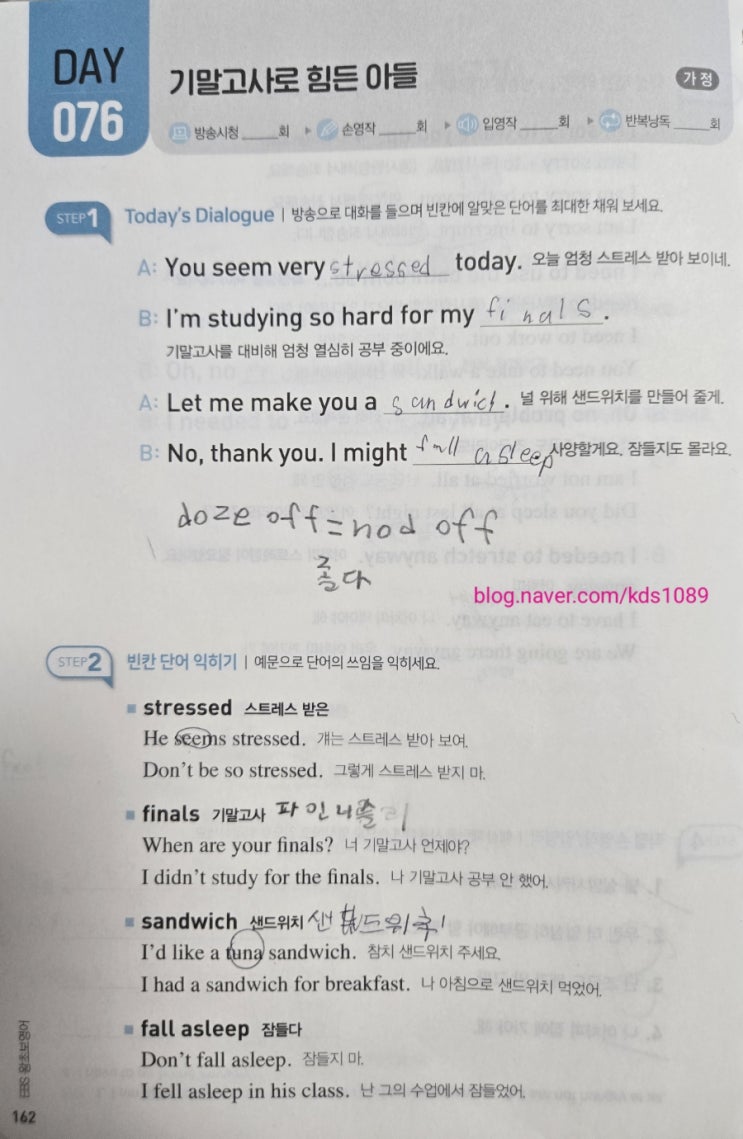 DAY
076
기말고사로 힘든 아들
가정
방송시청 ____회 ▶ 손영작 ____회 ▶ 입영작 ____회 ▶ 반복낭독 ____회
STEP 1 Today's Dialogue | 방송으로 대화를 들으며 빈칸에 알맞은 단어를 최대한 채워 보세요.
A: You seem very stressed today. 오늘 엄청 스트레스 받아 보이네.
B: I'm studying so hard for my finals.
기말고사를 대비해 엄청 열심히 공부 중이에요.
A: Let me make you a sandwich. 널 위해 샌드위치를 만들어 줄게.
B: No, thank you. I might fall asleep 사양할게요. 잠들지도 몰라요.
doze off = nod off
졸다
blog.naver.com/kds1089
STEP 2 빈칸 단어 익히기 | 예문으로 단어의 쓰임을 익히세요.
■ stressed 스트레스 받은
He seems stressed. 걔는 스트레스 받아 보여.
Don't be so stressed. 그렇게 스트레스 받지 마.
■ finals 기말고사
When are your finals? 너 기말고사 언제야?
I didn't study for the finals. 나 기말고사 공부 안 했어.
■ sandwich 샌드위치
I'd like a tuna sandwich. 참치 샌드위치 주세요.
I had a sandwich for breakfast. 나 아침으로 샌드위치 먹었어.
■ fall asleep 잠들다
Don't fall asleep. 잠들지 마.
I fell asleep in his class. 난 그의 수업에서 잠들었어.
EBS 왕초보영어
162